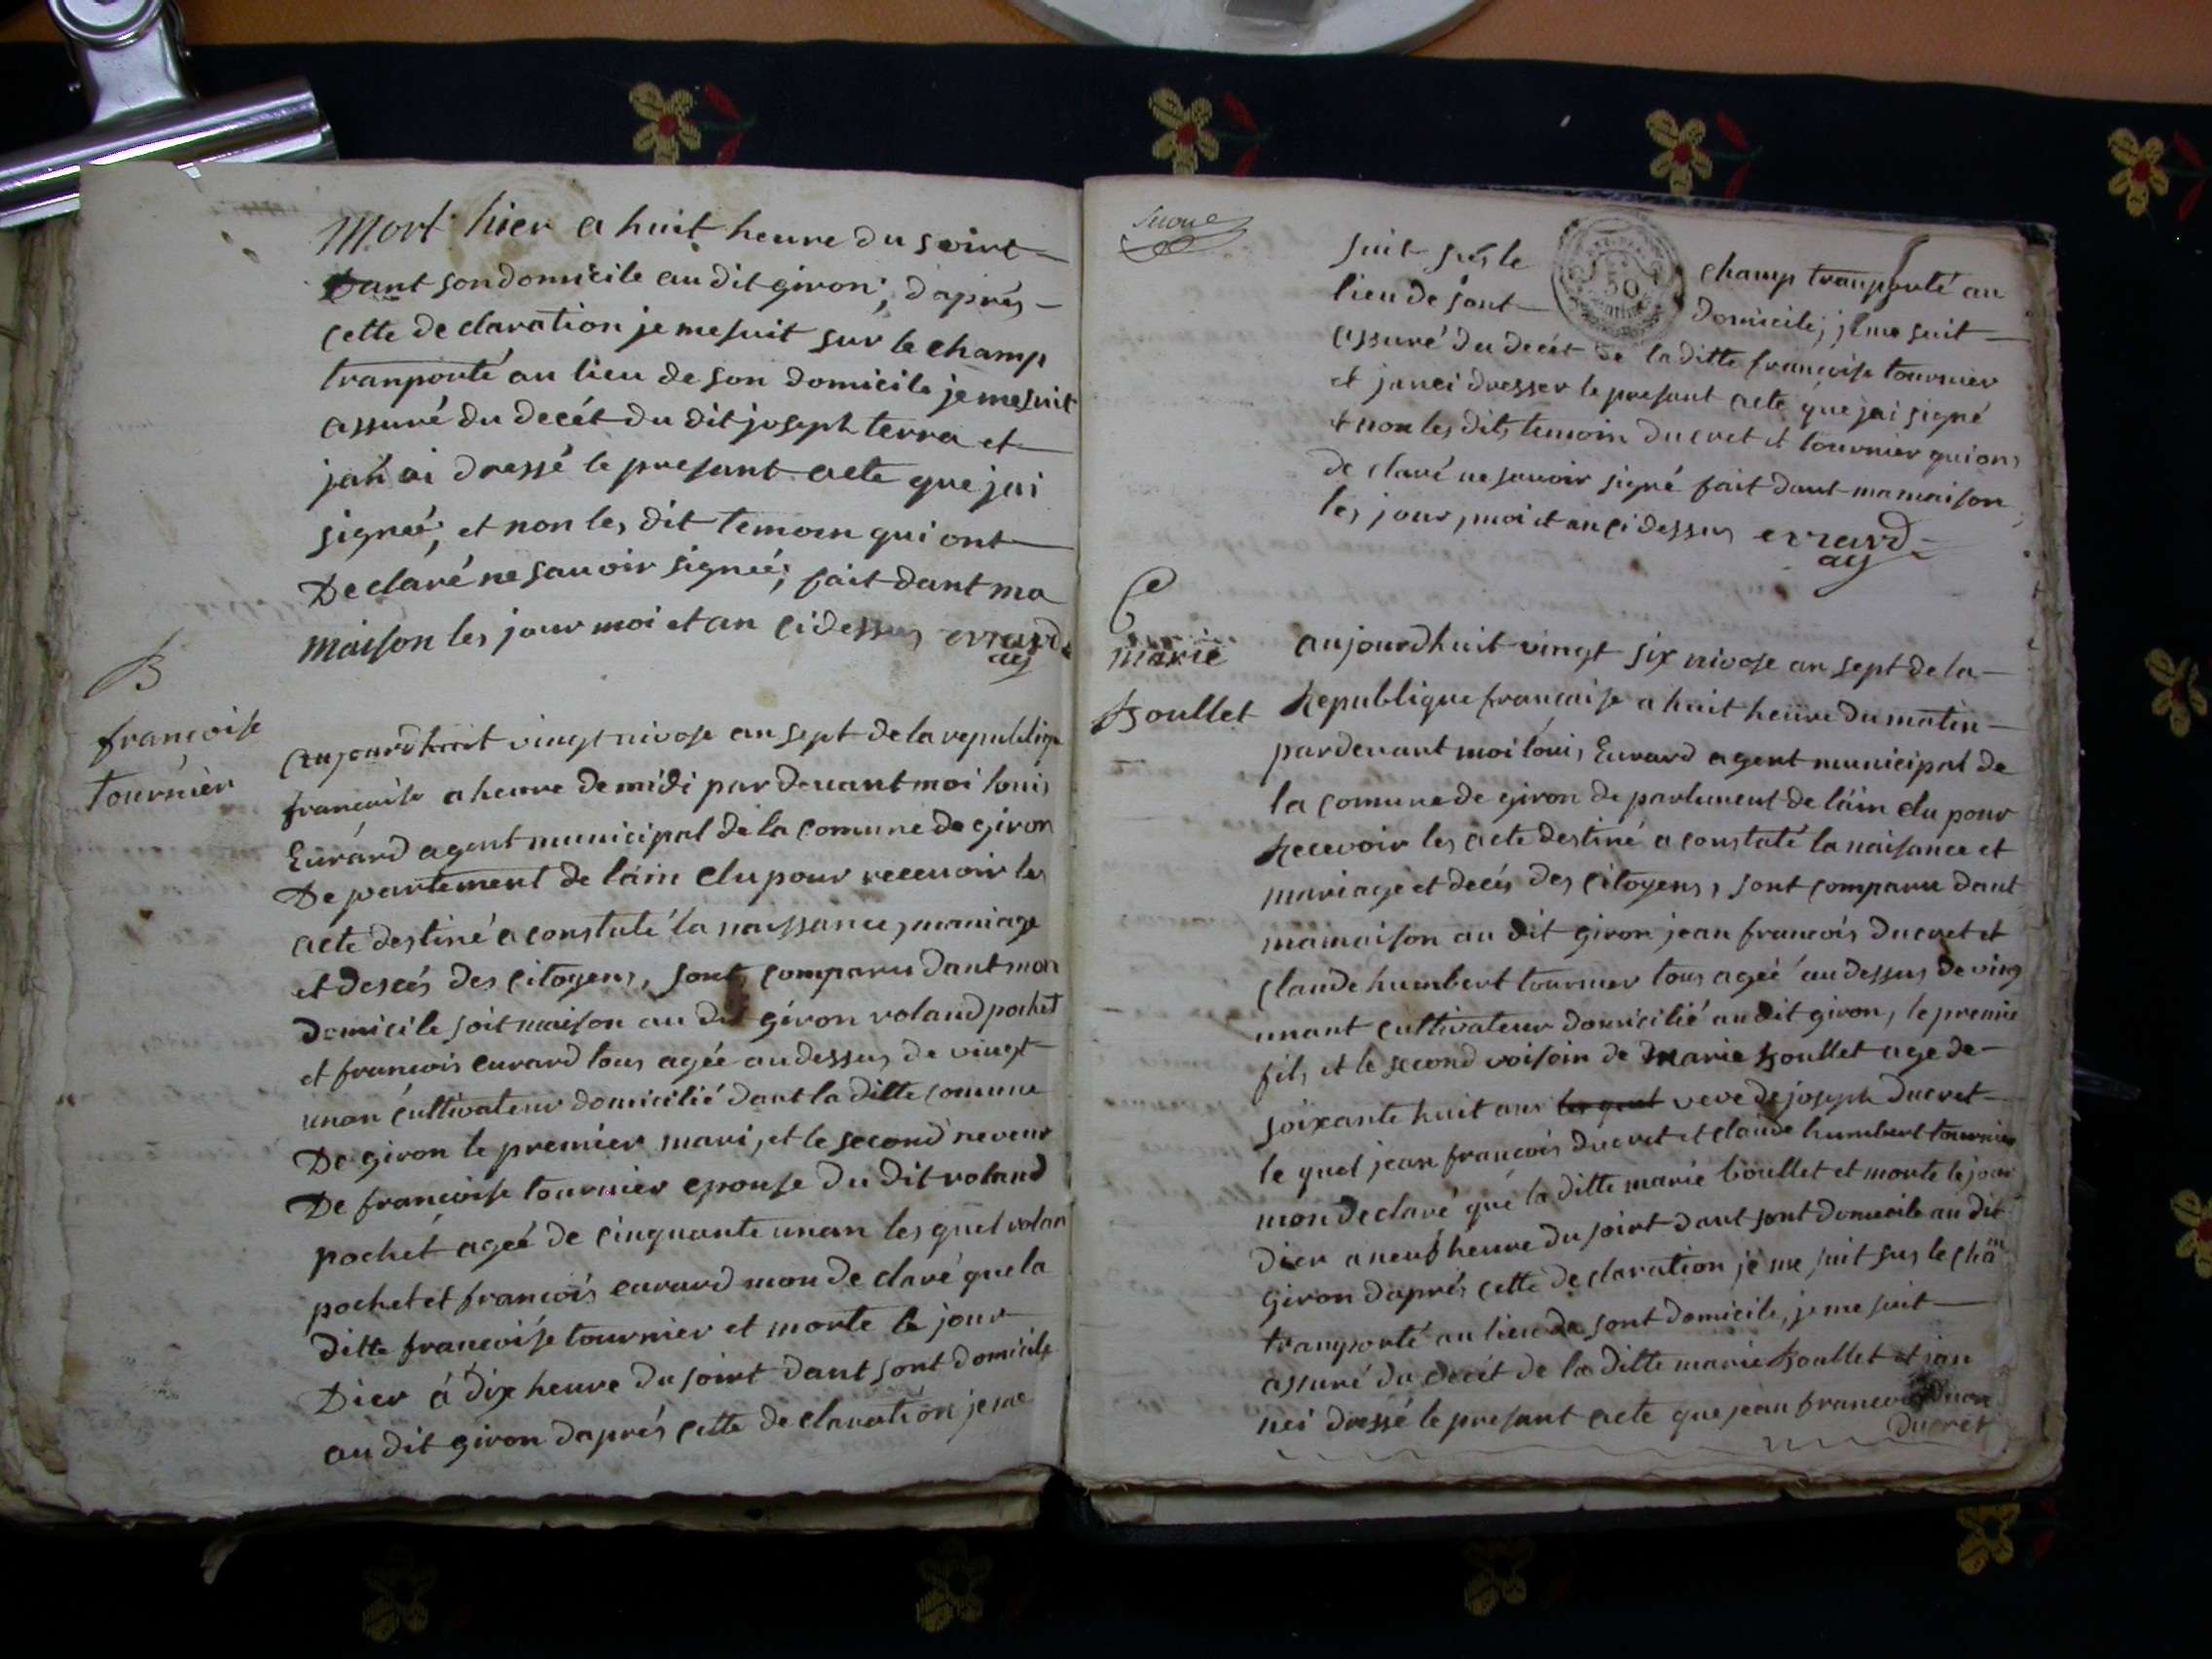 Mort hier a huit heure du soirt
Dant son domicile au dit giron, d'aprés
cette declaration je me suit sur le champ
tranporté au lieu de son domicile je me suit
assuré du decét du dit joseph terra et
jan ai dressé le presant acte que jai
signéé, et non les dit temoin qui ont
Declaré ne savoir signéé; fait dant ma
maison les jour moi et an ci dessus evrard
ag
B
francoise
tournier
aujourdhuit vingt nivose an sept de la republiq
francoise a heure de midi par devant moi louis
Evrard agent municipal de la comune de giron
De partement de láin elu pour recevoir les
acte destiné a constaté la naissance, mariage
et descés des citoyens, sont comparu dant mon
domicile soit maison au dit giron roland pochet
et francois evrard tous agée au dessus de vingt
unan cultivateur domicilié dant la ditte comune
De giron le premier mari, et le second neveur
De francoise tournier epouse du dit roland
pochet ageé de cinquante unan les quel rolan
pochet et francois evrard mon de claré que la
ditte francoise tournier et morte le jour
Dier á dix heure du soirt dant sont domicile
au dit giron daprés cette de claration je me
suit surle champ tranporté au
lieu de sont domicile, je me suit
50
assuré du decét de la ditte francoise tournier
et janei dresser le presant acte que jai signé
et non les dits temoin ducret et tournier qui ons
de claré ne savoir signé fait dant ma maison
les jour, moi et an ci dessus evrard
ag
C
marie
Boullet
aujourdhuit vingt six nivose an sept de la
Republique francaise a huit heure du matin
par devant moi loui, Evrard agent municipal de
la comune de giron de partement de láin elu pour
Recevoir les acte destiné a constaté la naisance et
mariage et decés des citoyens, sont comparu dant
ma maison au dit giron jean francois ducret et
claude humbert tournier tous agéé au dessus de ving
unant cultivateur domicilié au dit giron, le premie
fils et le second voisoin de Marie Boullet age de
soixante huit ans les quel veve de joseph ducret
le quel jean francois ducret et claude humbert tournier
mon declaré que la ditte marie boullet et morte le jour
Dier a neuf heure du soirt dant sont domicile au dit
giron daprés cette declaration je me suit sus le cham
tranporté au lieu de sont domicile, je me suit
assuré du decét de la ditte marie Boullet et jan
nei dressé le presant acte que jean francois
ducret